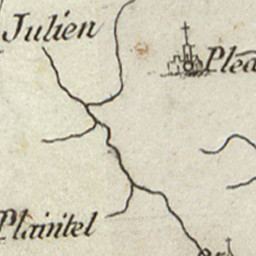 Julien
Pléd
Plaintel